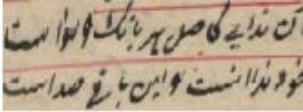 آن ندایی کاصل هر بانگ و نواست
خود ندا آنست و این باقی صداست